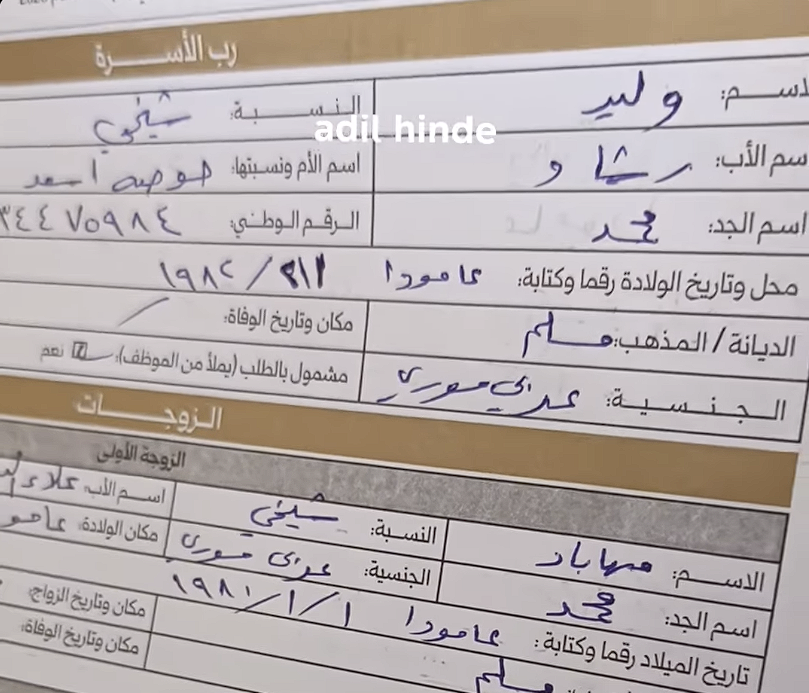 رب الأسرة
الاسم: وليد النسبة: شيخي
adil hinde
اسم الأب: رشاد اسم الأم ونسبتها: اسعد
اسم الجد: محمد الرقم الوطني: ٣٤٤٧٥٩٨٤
محل وتاريخ الولادة رقما وكتابة: عامودا ١٩٨٢
الديانة / المذهب: مسلم مكان وتاريخ الوفاة: /
الجنسية: عربي سوري مشمول بالطلب (يملأ من الموظف): نعم
الزوجات
الزوجة الأولى
الاسم: مهاباد النسبة: شيخي اسم الأب: علاء
اسم الجد: محمد الجنسية: عربي سوري مكان الولادة: عامو
تاريخ الميلاد رقما وكتابة: عامودا ١/١/١٩٨١ مكان وتاريخ الزواج:
مسلم مكان وتاريخ الوفاة: